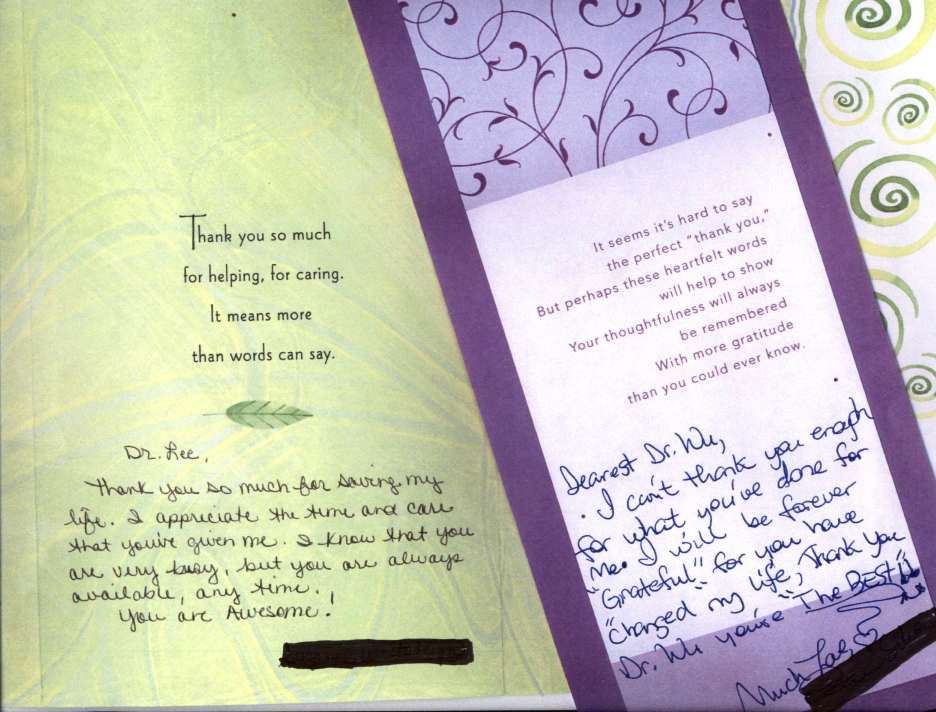 Thank you so much
for helping, for caring.
It means more
than words can say.
Dr. Lee,
Thank you so much for saving my
life. I appreciate the time and care
that you've given me. I know that you
are very busy, but you are always
available, any time.
You are Awesome!
It seems it's hard to say
the perfect "thank you,"
But perhaps these heartfelt words
will help to show
Your thoughtfulness will always
be remembered
With more gratitude
than you could ever know.
Dearest Dr. Wu,
I can't thank you enough
for what you've done for
me. I will be forever
"Grateful" for you have
"changed" my life, Thank you
Dr. Wu you're "The BEST!!"
Much Love,